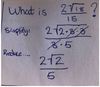 What is 2√18 ?
15
Simplify: 2√2·3·3
3·5
Reduce... 2√2
5